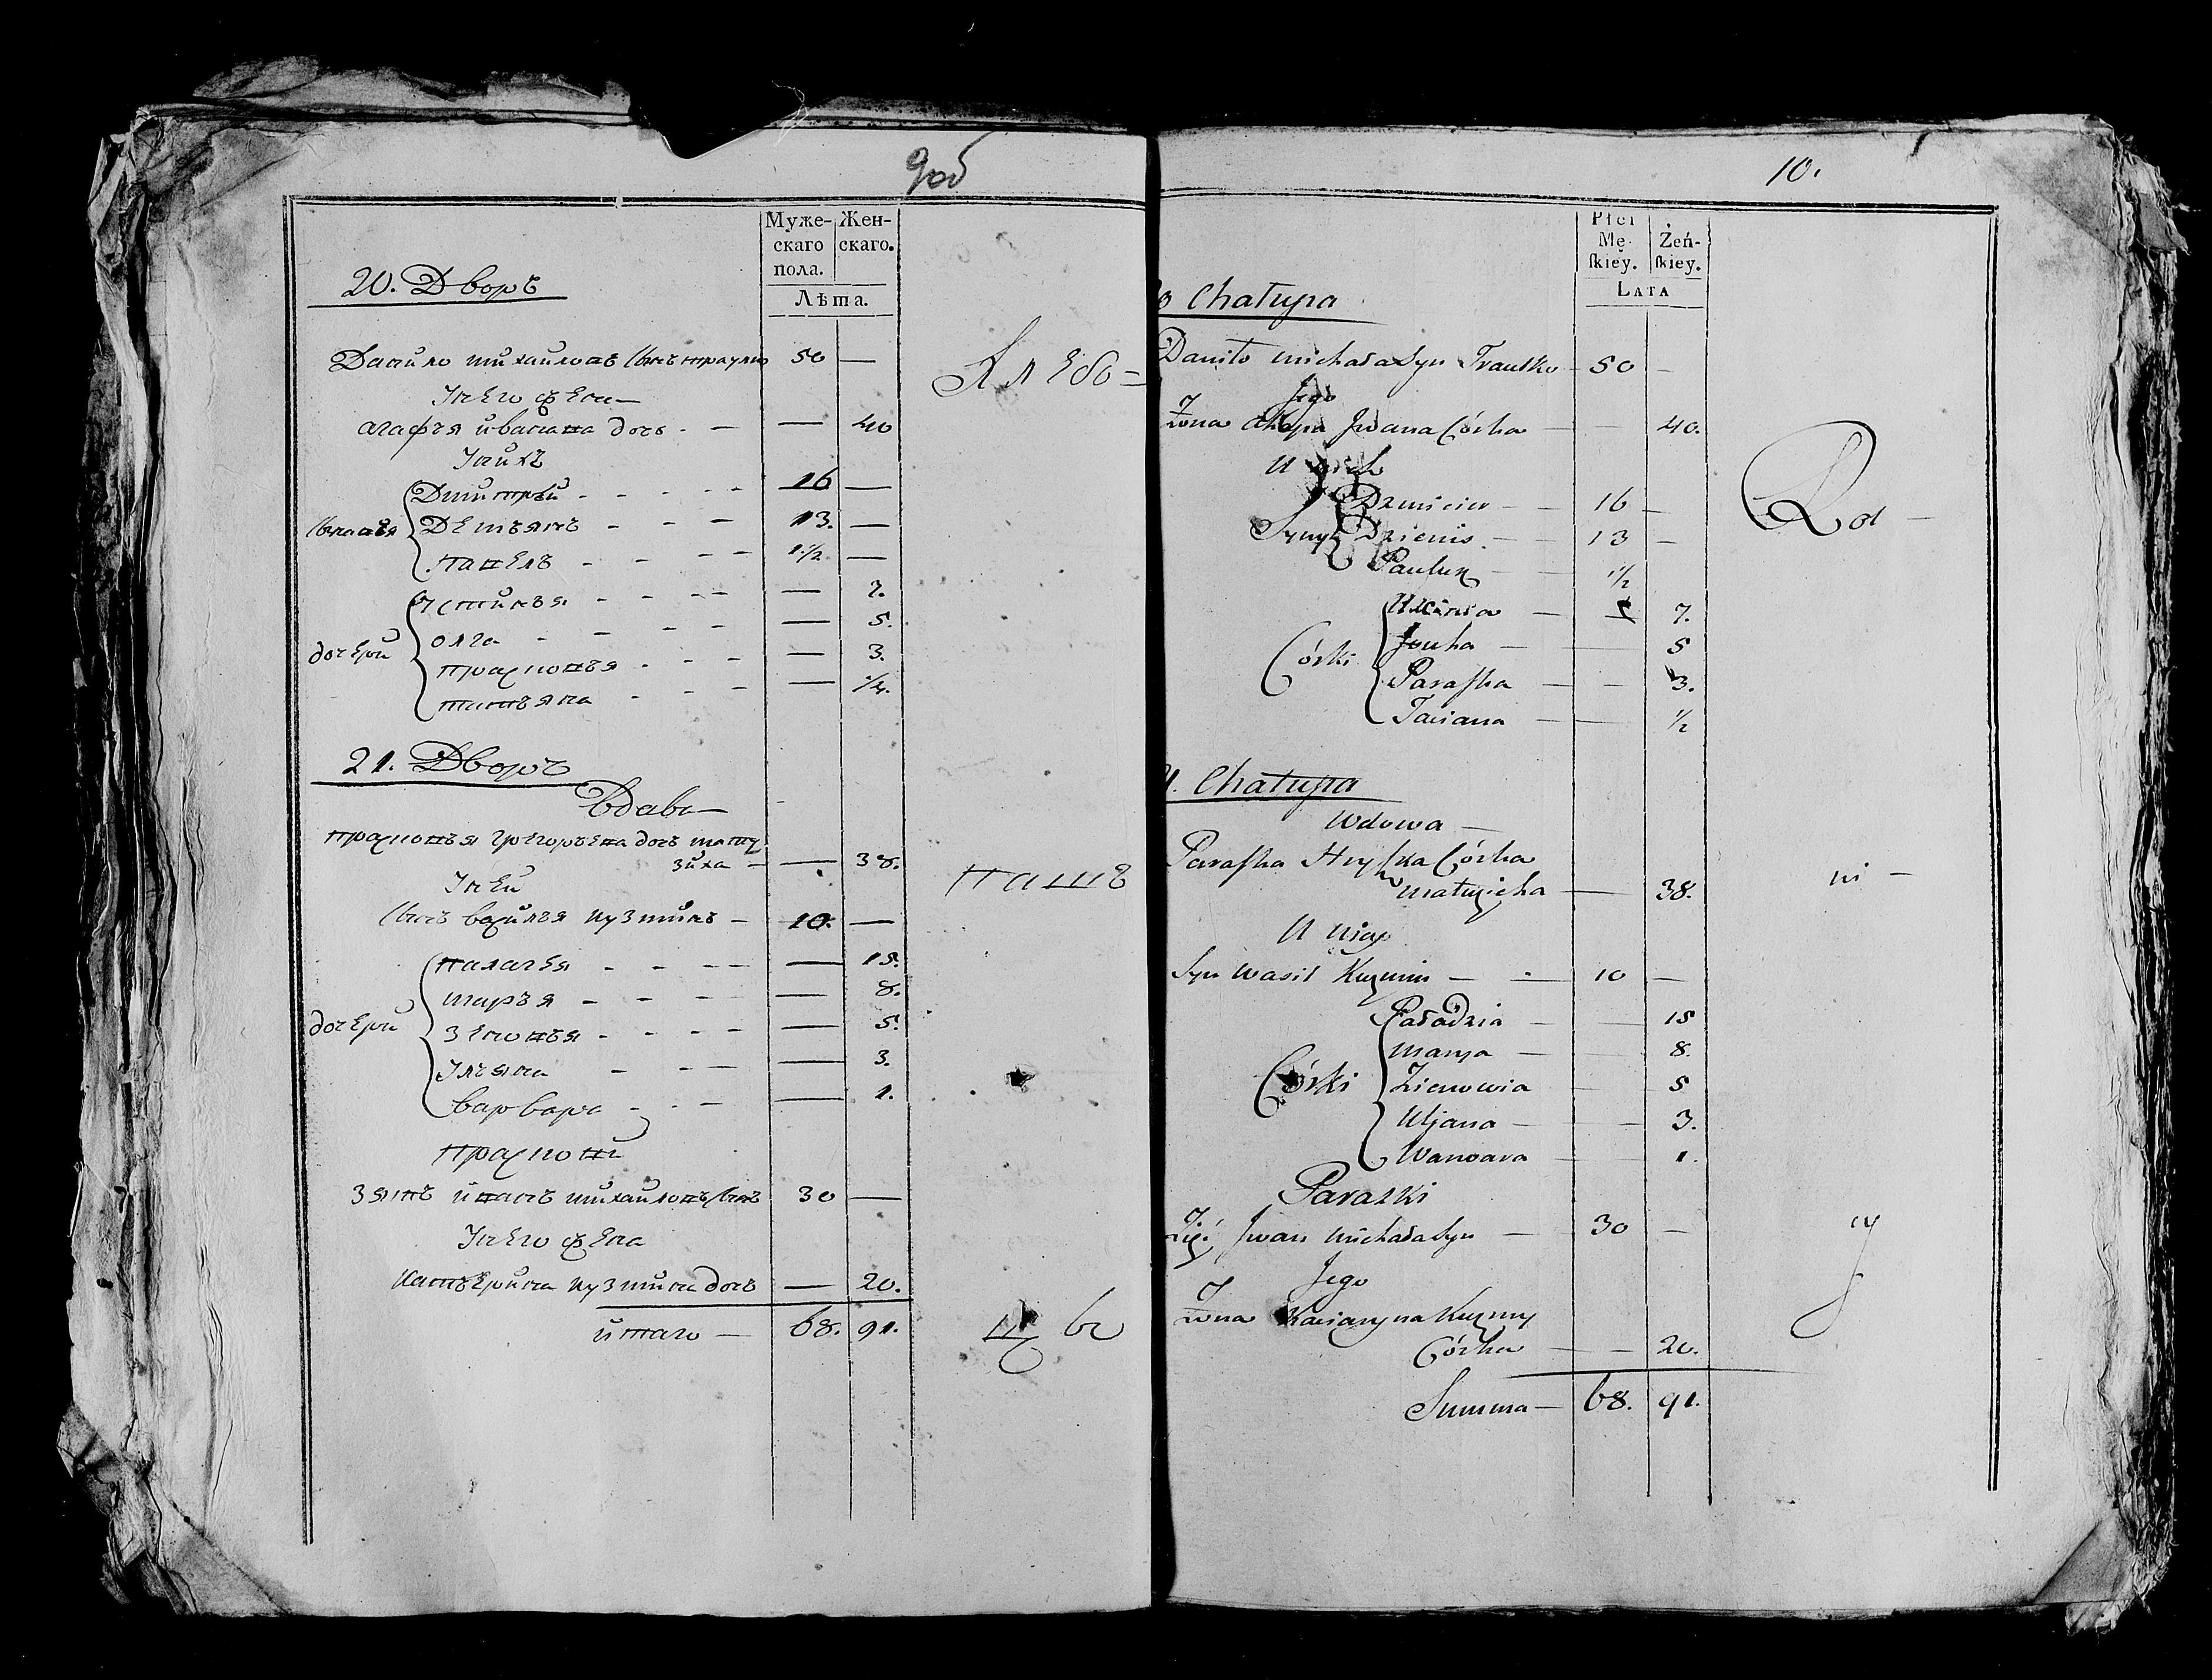 9об
Муже-
скаго
пола.
Жен-
скаго.
Лѣта.
20. Дворъ
Данило михайловъ сынъ траутко 50 —
У него жена —
агафья ивано†а дочь - — — 40
У нихъ
сыновья
Дмитрей - - - - - 16 —
Демьянъ - - - 13. —
павелъ - - - - 1 1/2 —
дочерй
Устинья - - - - — 7.
олга - - - - — 5.
прасковья - - - — 3.
татьяна - - - — 1/2.
21. Дворъ
Вдава —
прасковья григорьева дочь мату
зиха — — 38.
У ней
сынъ василья кузминъ — 10. —
дочерй
палагея - - - - — 15.
марья - - - - — 8.
зеновья - - - - — 5.
Ульяна - - - — 3.
варвара - - - — 1.
прасковьи
зять иванъ михайловъ сынъ 30 —
У него жена
катерина кузмина дочь — 20.
итаго — 68. 91.
Хлебо =
10.
Płci
Mę-
skiey.
Żeń-
skiey.
LATA
Chałupa
Daniło Michała Syn Trautko 50 —
Jego
Żona Ahapa Jwana Córka — — 40.
U nich
Syny
Dzmicier — — 16 —
Dzienis — — 13 —
Pauluk — — 1/2
Córki
Uścinia — 7.
Jouha — — 5
Paraska — — 3.
Taciana — — 1/2
Chałupa
Wdowa —
Paraska Hryszka Córka
Matuzicha — — 38.
U niey
Syn Wasil Kuzmin — - 10 —
Córki
Paładzia — — 15
Marya — — 8.
Zienowia — 5
Uljana — — 3.
Warwara — — 1.
Paraski
Zięć Jwan Michała Syn — 30 —
Jego
Żona Kaciaryna Kuzmy
Córka — — 20.
Summa — 68. 91.